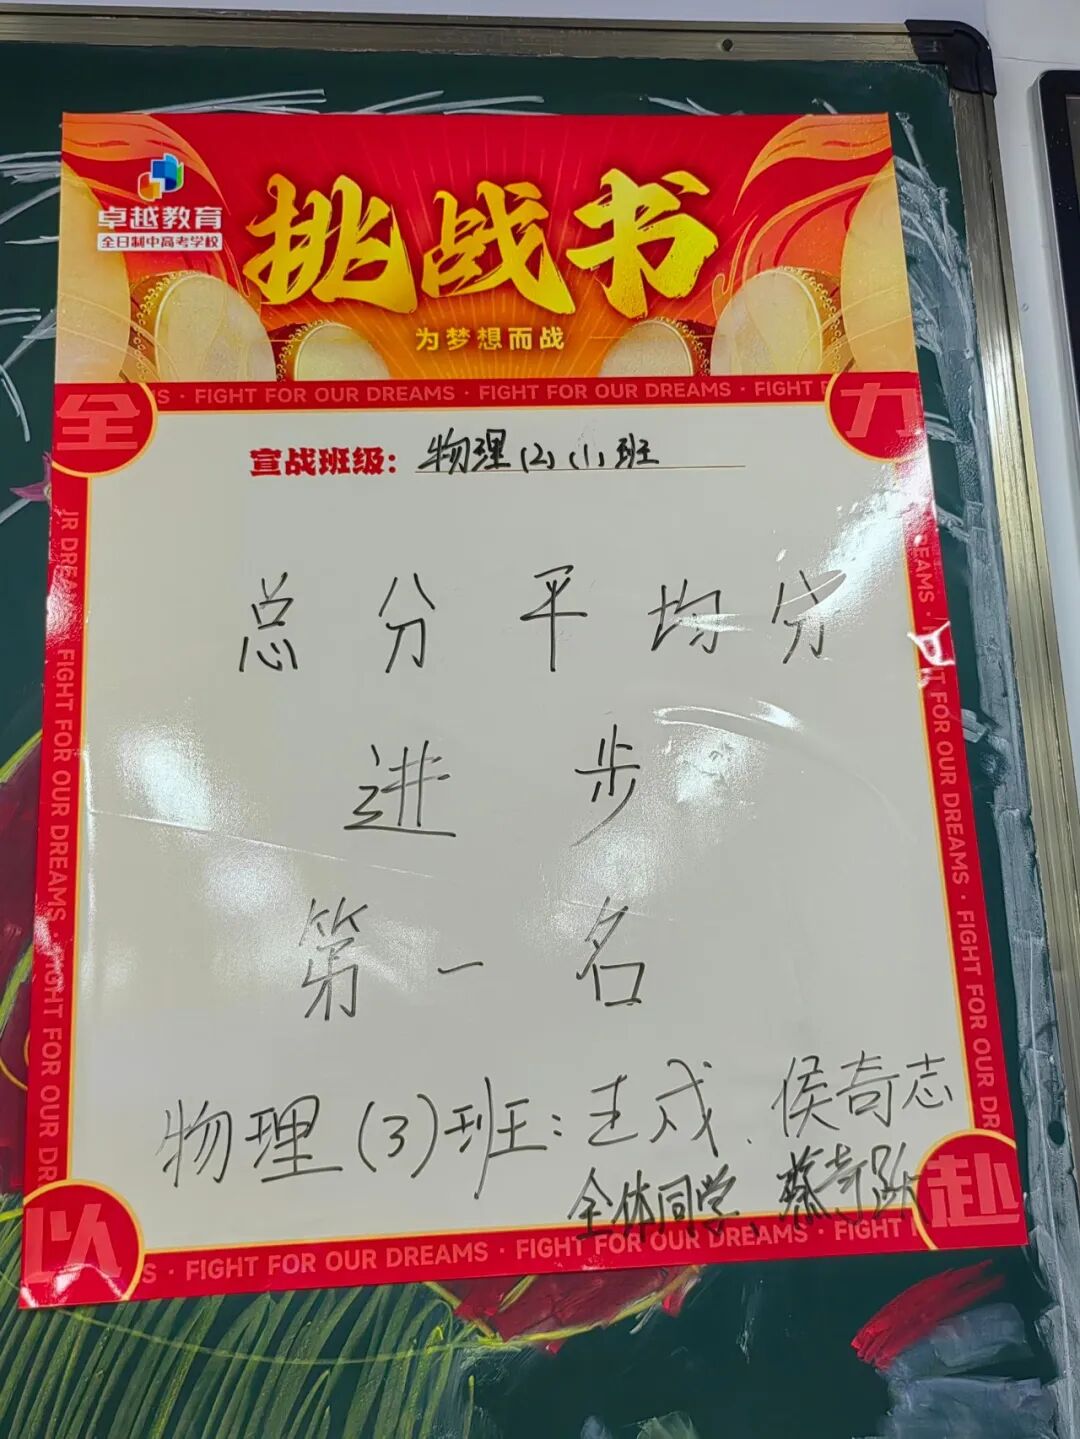 卓越教育
全日制中高考学校
挑战书
为梦想而战
S · FIGHT FOR OUR DREAMS · FIGHT FOR OUR DREAMS · FIGHT F
全 力
宣战班级: 物理(2)(1)班
总分平均分
进步
第一名
物理(3)班:王成、侯奇志
全体同学、蔡奇
以 赴
S · FIGHT FOR OUR DREAMS · FIGHT FOR OUR DREAMS · FIGHT
UR DREAMS · FIGHT FOR OUR DREAMS · FIGHT FOR OUR DR
REAMS · FIGHT FOR OUR DREAMS · FIGHT FOR OUR DR